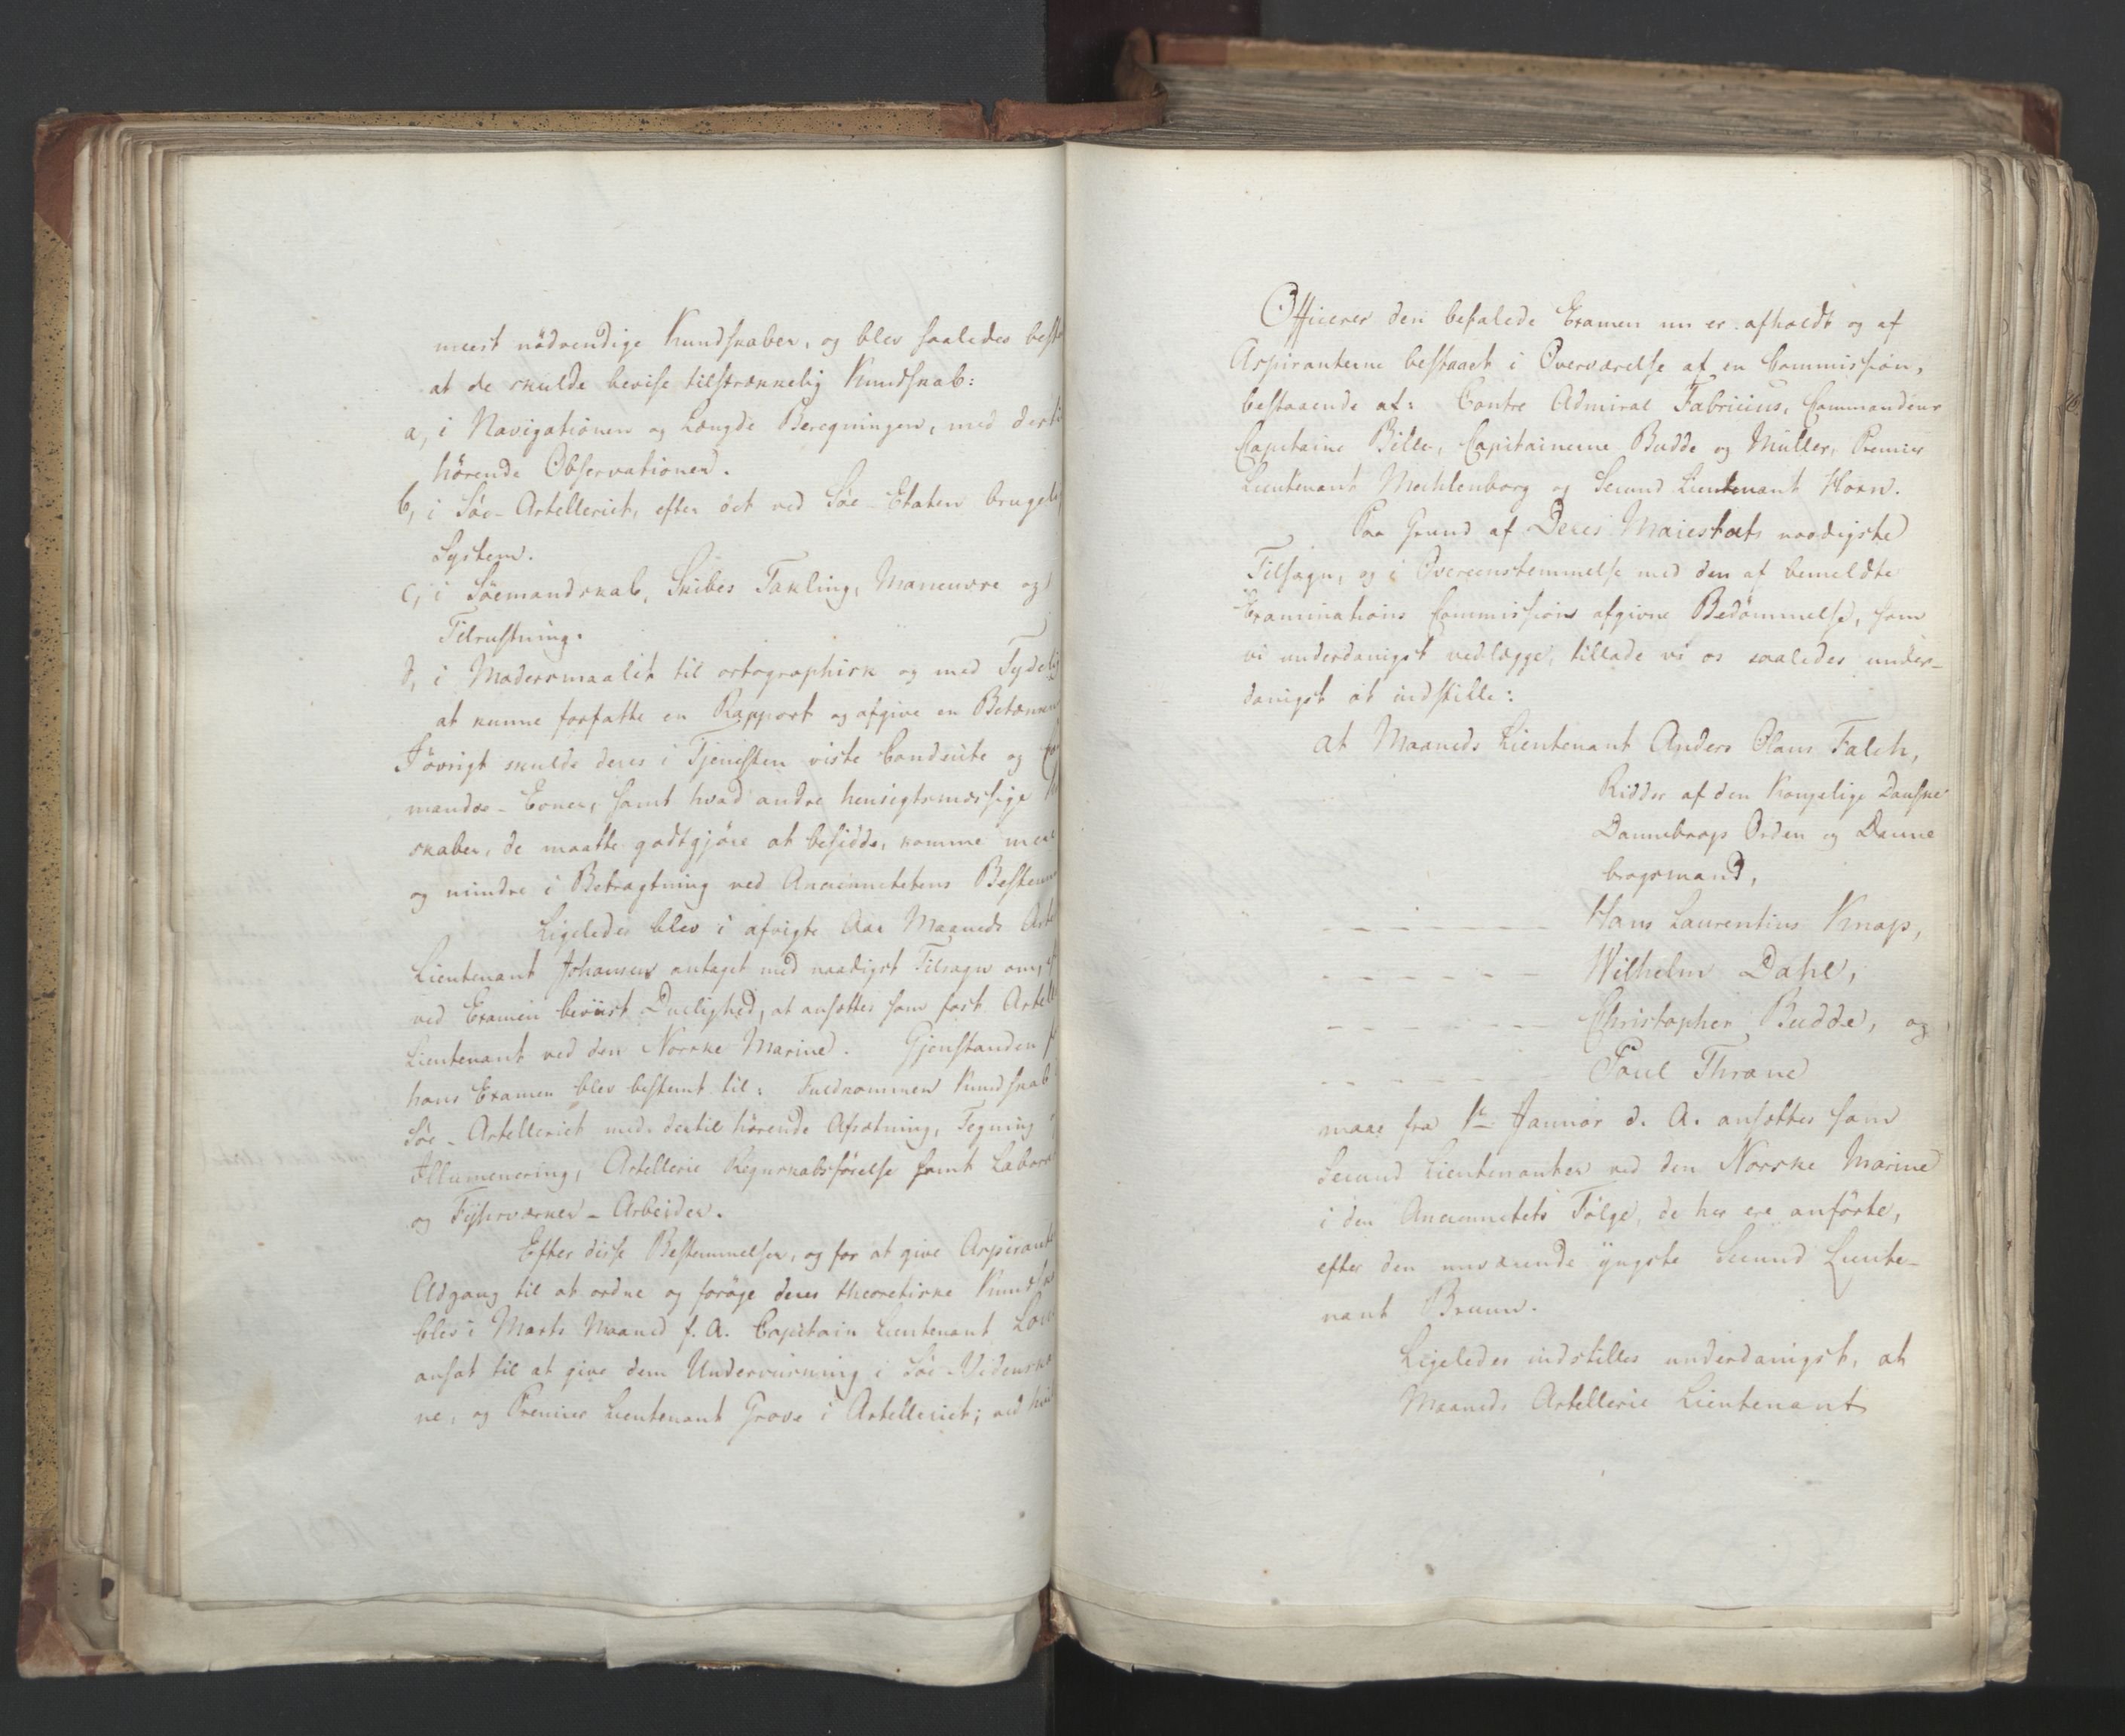 meest nödvendige Kundskaber, og blev saaledes best
at de skulde bevise tilstrækkelig Kundskab:
a, i Navigationen og Længde Beregningen, med derti
hörende Observationer.
b, i Söe-Artelleriet, efter det ved Söe-Etaten brugeli
System.
c, i Söemandskab, Skibes Takling, Maneuvre og
Tilrustning.
d, i Modersmaalet til ortographisk og med Tydelig
at kunne forfatte en Rapport og afgive en Betænkn
Iövrigt skulde deres i Tjenesten viste Conduite og
mands-Evner, samt hvad andre hensigtsmæssige
skaber, de maatte godtgjöre at besidde, komme mere
og mindre i Betragtning ved Anciennitetens Bestem
Ligeledes blev i afvigte Aar Maaneds Arte
Lieutenant Johansen antaget med naadigst Tilsagn om,
ved Examen beviist Duelighed, at ansættes som fast Artell
Lieutenant ved den Norske Marine. Gjenstanden f
hans Examen blev bestemt til: Fuldkommen Kundskab
Söe-Artelleriet med dertil hörende Afsætning, Tegning
Illumenering, Artellerie Regnskabsförelse samt Labora
og Fyrværker-Arbeider.
Efter disse Bestemmelser, og for at give Aspirante
Adgang til at ordne og foröge deres theoretiske Kundska
blev i Marts Maaned f. A. Capitain Lieutenant
ansat til at give dem Underviisning i Söe-Videnska
ne, og Premier Lieutenant Grove i Artelleriet; ved hvi
Officerer den befalede Examen nu er afholdt og af
Aspiranterne bestaaet i Overværelse af en Commission,
bestaaende af: Contre Admiral Fabricius, Commandeur
Capitaine Bille, Capitainerne Budde og Müller, Premier
Lieutenant Mechlenborg og Secund Lieutenant Horn.
Paa Grund af Deres Maiestæts naadigste
Tilsagn, og i Overeenstemmelse med den af bemeldte
Examinations Commission afgivne Bedömmelse, som
vi underdanigst vedlægge, tillade vi os saaledes under-
danigst at indstille:
at Maaneds Lieutenant Anders Olaus Falch,
Ridder af den Kongelige Danske
Dannebrogs Orden og Danne
brogsmand,
- - - - - - Hans Laurentius Knap,
- - - - - - Wilhelm Dahl,
- - - - - - Christopher Budde, og
- - - - - - Poul Thrane
maae fra 1te Januar d. A. ansættes som
Secund Lieutenanter ved den Norske Marine
i den Anciennitets Fölge, de her ere anförte,
efter den nuværende yngste Secund Lieute-
nant Bruun.
Ligeledes indstilles underdanigst, at
Maaneds Artellerie Lieutenant